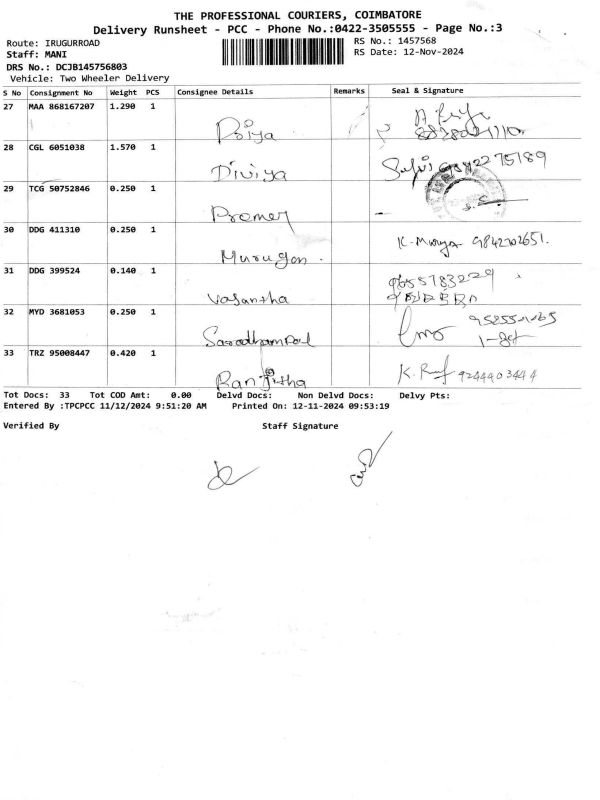 THE PROFESSIONAL COURIERS, COIMBATORE
Delivery Runsheet - PCC - Phone No.:0422-3505555 - Page No.:3
Route: IRUGURROAD
Staff: MANI
DRS No.: DCJB145756803
Vehicle: Two Wheeler Delivery
RS No.: 1457568
RS Date: 12-Nov-2024
S No Consignment No Weight PCS Consignee Details Remarks Seal & Signature
27 MAA 868167207 1.290 1 Priya
28 CGL 6051038 1.570 1 Diviya 9842275189
29 TCG 50752846 0.250 1
30 DDG 411310 0.250 1 Murugan.
31 DDG 399524 0.140 1 Vasantha 9655783229
32 MYD 3681053 0.250 1
33 TRZ 95008447 0.420 1 Ranjitha 9244403444
Tot Docs: 33 Tot COD Amt: 0.00 Delvd Docs: Non Delvd Docs: Delvy Pts:
Entered By :TPCPCC 11/12/2024 9:51:20 AM Printed On: 12-11-2024 09:53:19
Verified By Staff Signature